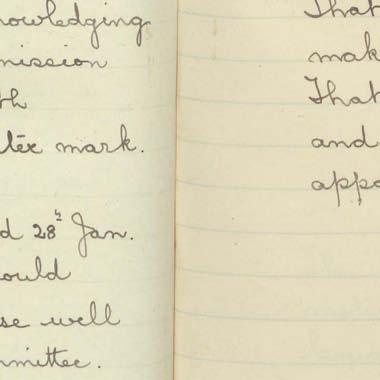 nowledging
mission
th
ter mark.
d 28th Jan.
ould
se well
mmittee.
That
mak
That
and
appo